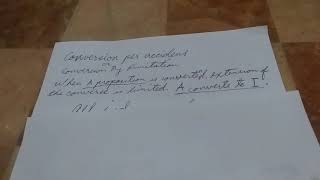 Conversion per accident
or
Conversion By Limitation
When A proposition is converted, extension of
the converse is limited. A converts to I.
All